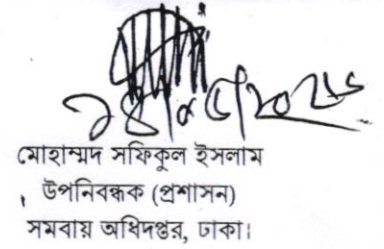 মোহাম্মদ সফিকুল ইসলাম
উপনিবন্ধক (প্রশাসন)
সমবায় অধিদপ্তর, ঢাকা।